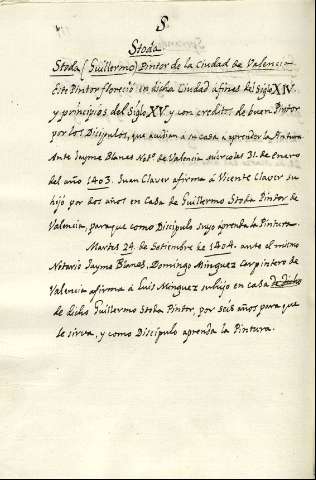 S
Stoda
Stoda (Guillermo) Pintor de la Ciudad de Valencia
Este Pintor floreció en dicha Ciudad a fines del Siglo XIV.
y principios del Siglo XV. y con credito de buen Pintor
por los Disipulos, que acudian a su casa a aprender la Pintura
Ante Jayme Blanes Not.º de Valencia miercoles 31. de enero
del año 1403. Juan Claver afirma á Vicente Claver su
hijo por dos años en Casa de Guillermo Stoda Pintor de
Valencia, para que como Discipulo suyo aprenda la Pintura.
Martes 24. de Setiembre de 1404. ante el mismo
Notario Jayme Blanes, Domingo Minguez Carpintero de
Valencia afirma á Luis Minguez su hijo en casa de dicho
de dicho Guillermo Stoda Pintor, por seis años para que
le sirva, y como Discipulo aprenda la Pintura.